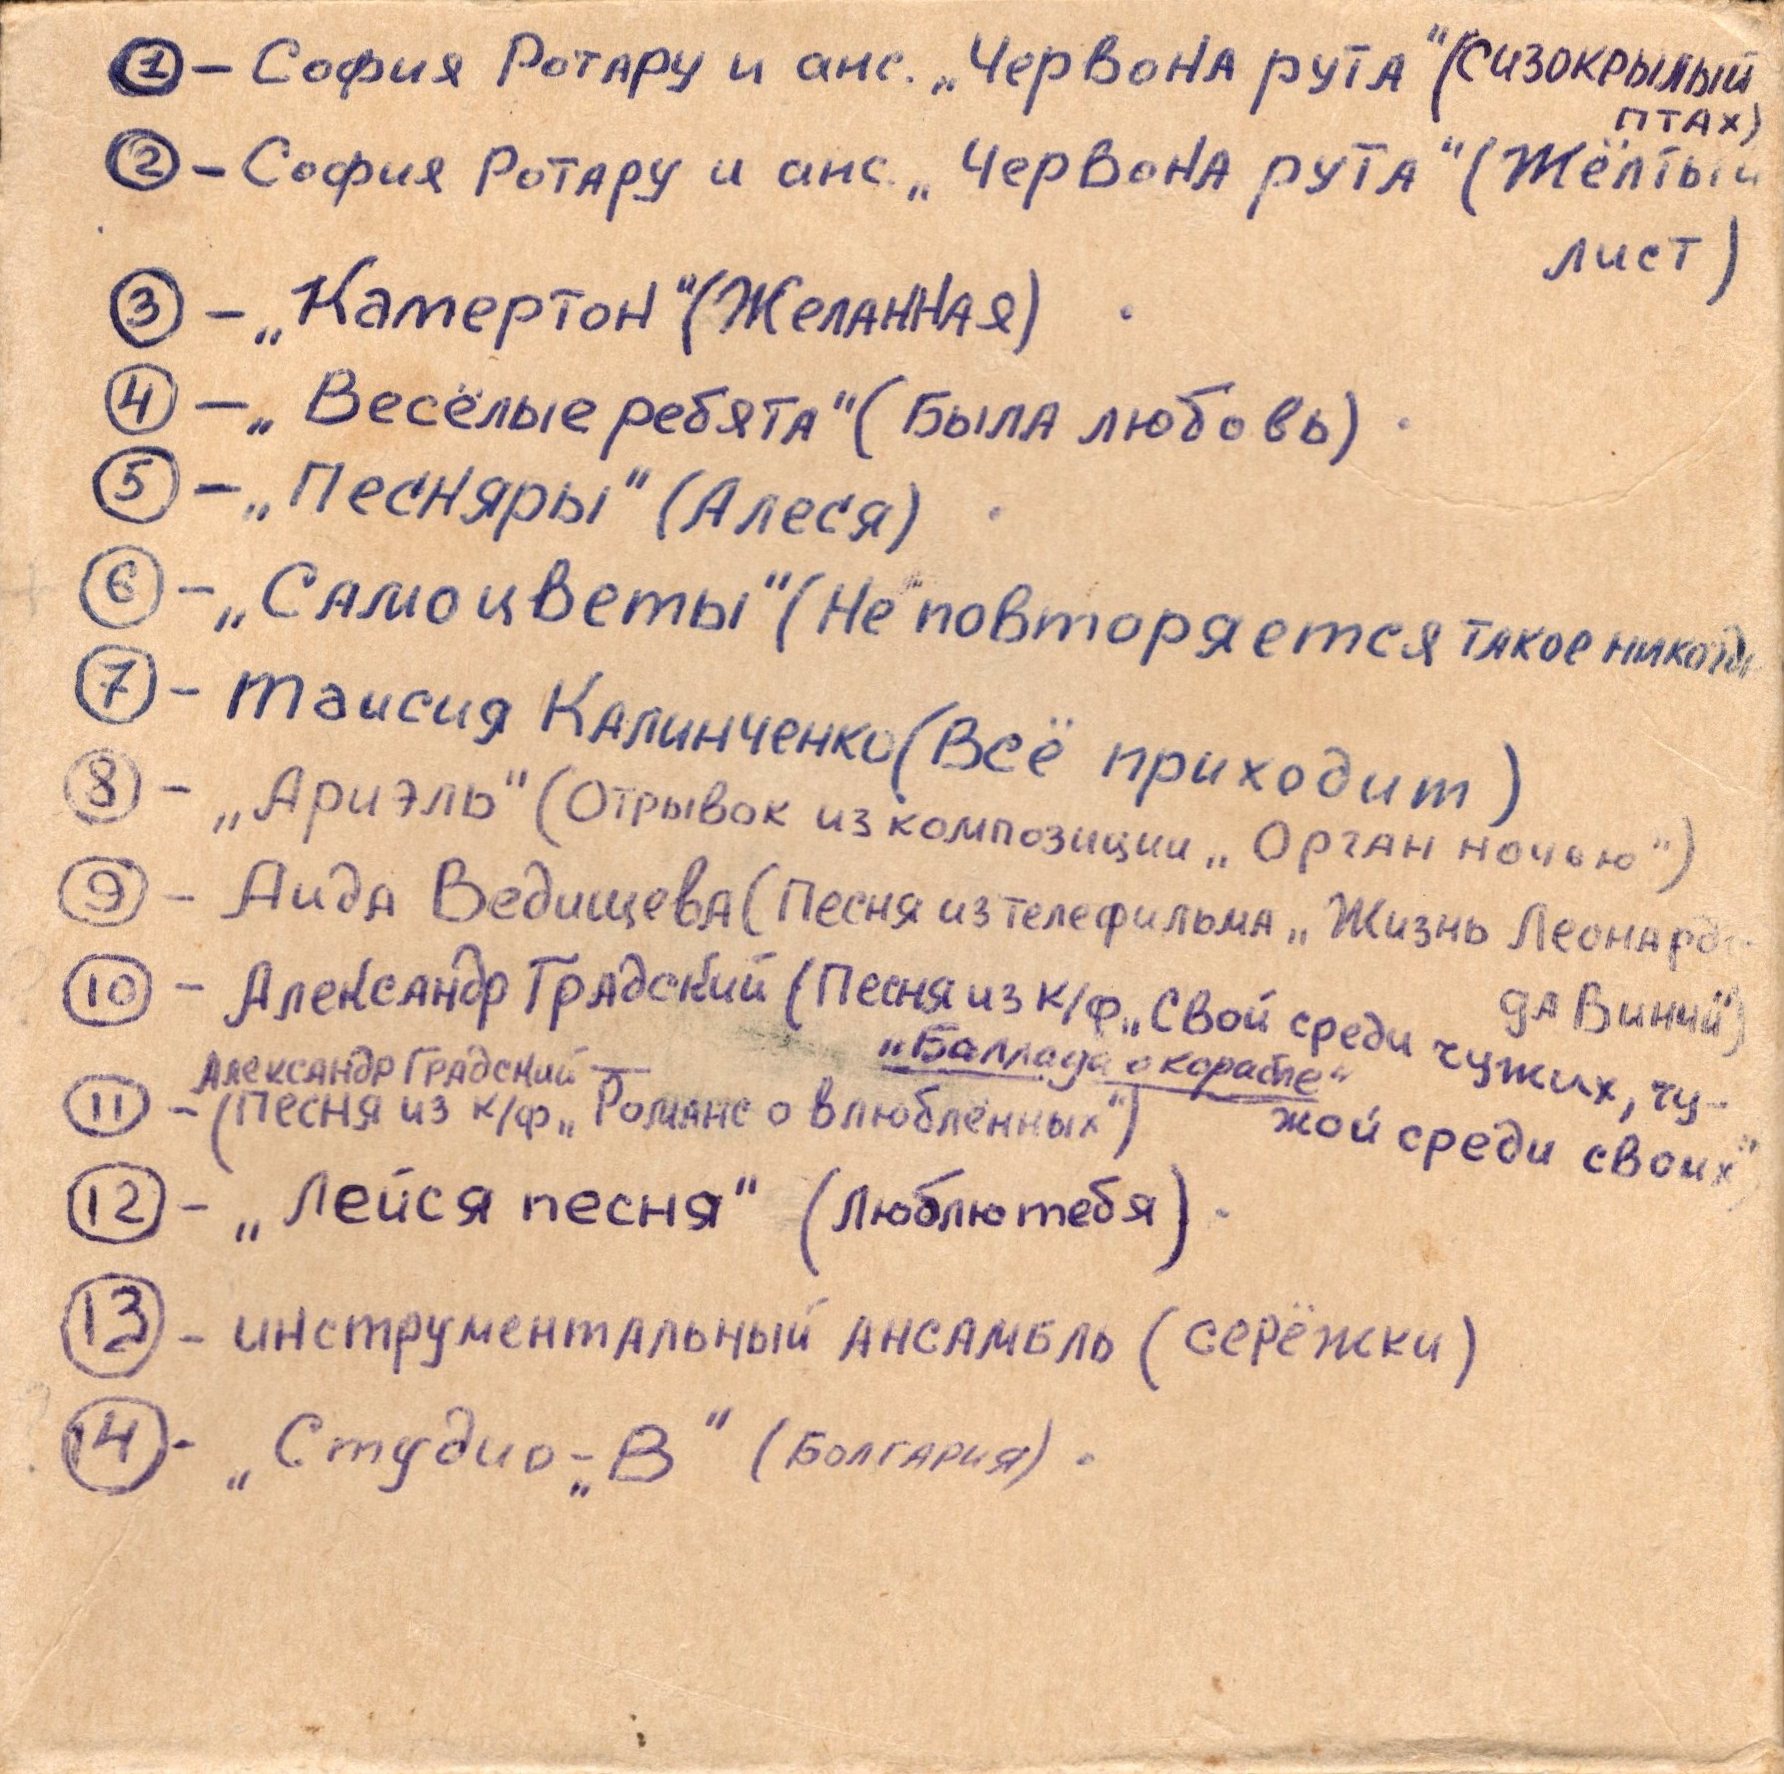 1 – София Ротару и анс. „Червона рута" (Сизокрылый
птах)
2 – София Ротару и анс. „Червона рута" (Жёлтый
лист)
3 – „Камертон" (Желанная)
4 – „Весёлые ребята" (Была любовь)
5 – „Песняры" (Алеся)
6 – „Самоцветы" (Не повторяется такое никогда
7 – Таисия Калинченко (Всё приходит)
8 – „Ариэль" (Отрывок из композиции „Орган ночью")
9 – Аида Ведищева (Песня из телефильма „Жизнь Леонардо
да Винчи")
10 – Александр Градский (Песня из к/ф „Свой среди чужих, чу-
жой среди своих"
„Баллада о корабле"
Александр Градский —
11 – (Песня из к/ф „Романс о влюблённых")
12 – „Лейся песня" (Люблю тебя)
13 – инструментальный ансамбль (серёжки)
14 – „Студио-„В" (Болгария)